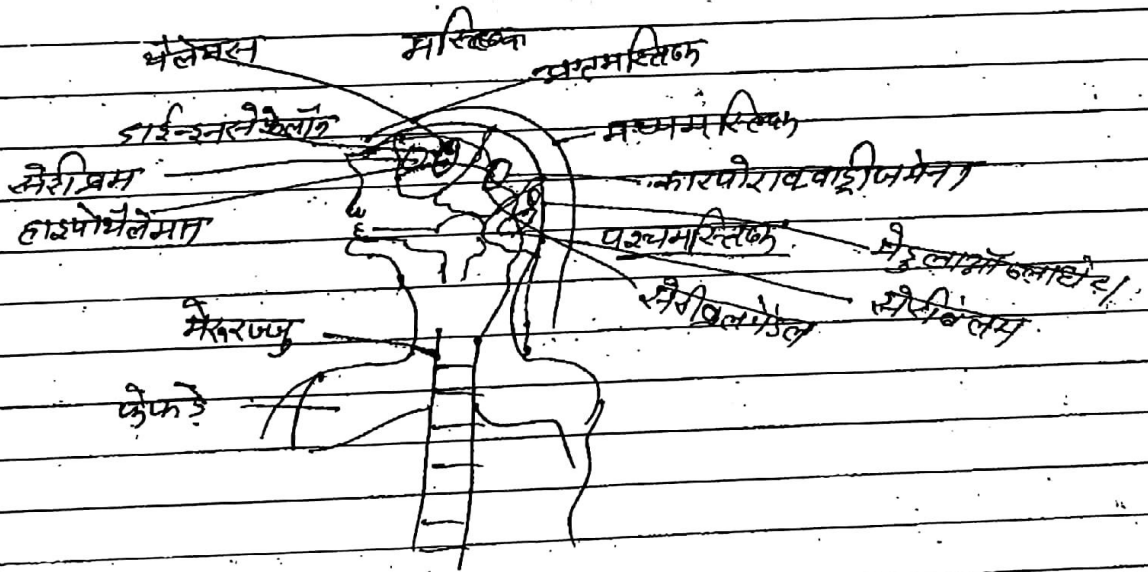 मस्तिष्क
थैलेमस
अग्रमस्तिष्क
डाईन्इनसेफेलॉन
मध्यमस्तिष्क
सेरीब्रम
कारपोराक्वाड्रीजमेना
हाइपोथैलेमान
पश्चमस्तिष्क
मेडुलाऑब्लांगेटा
सेरीबेलम
मेरूरज्जु
फेफड़े